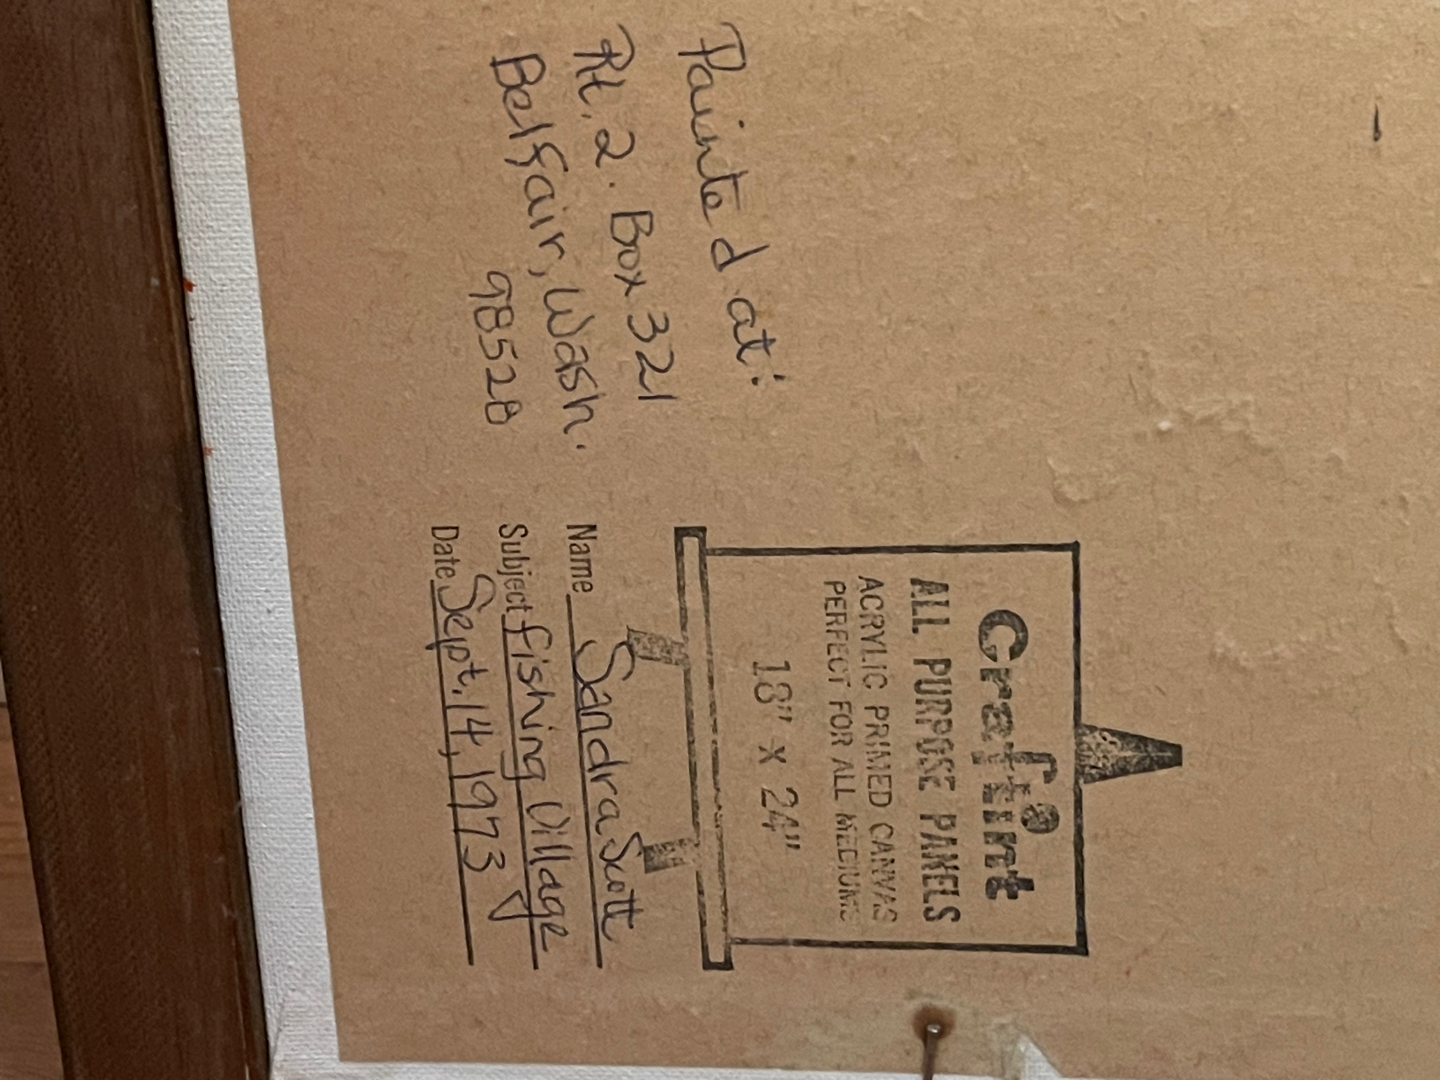 Painted at:
Rt. 2. Box 321
Belfair, Wash.
98528
Craftint
ALL PURPOSE PANELS
ACRYLIC PRIMED CANVAS
PERFECT FOR ALL MEDIUMS
18" x 24"
Name Sandra Scott
Subject fishing Village
Date Sept. 14, 1973